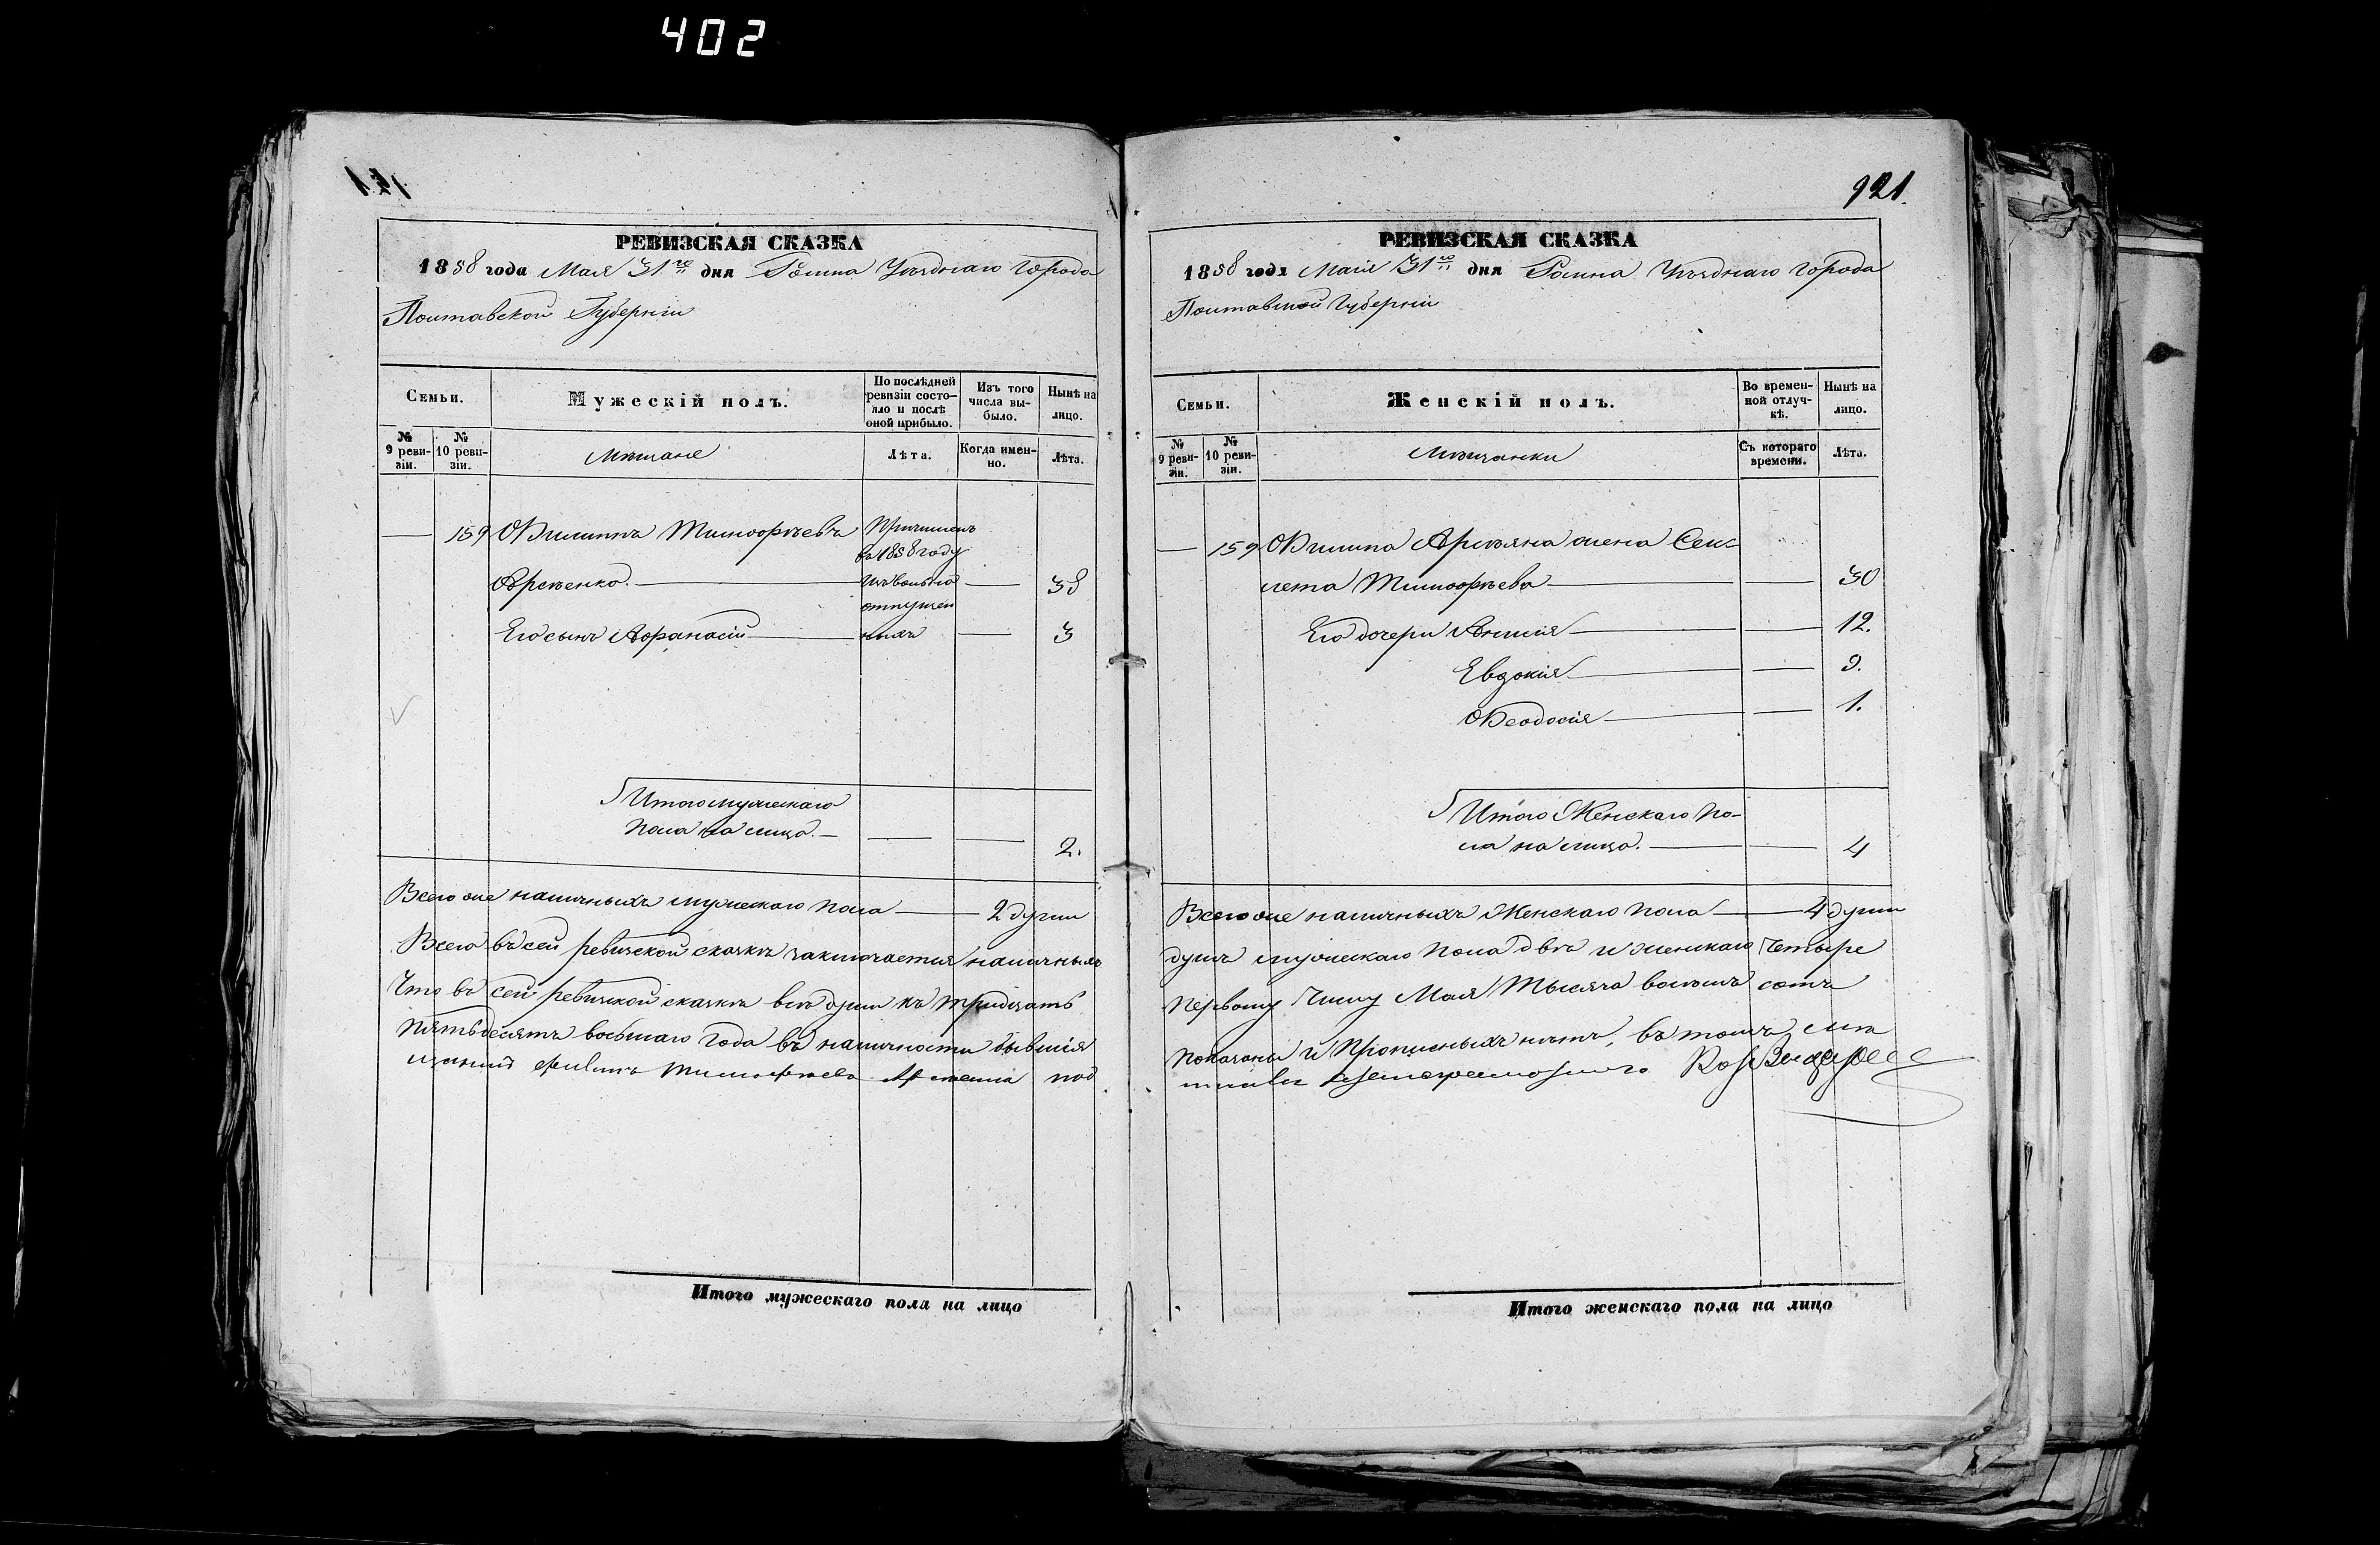 402
РЕВИЗСКАЯ СКАЗКА
1858 года Мая 31го дня Ромна Уѣзднаго Города
Полтавской Губерніи
Семьи.
Мужескій полъ.
По послѣдней ревизіи состояло и послѣ оной прибыло.
Изъ того числа выбыло.
Нынѣ на лицо.
№ 9 ревизіи.
№ 10 ревизіи.
Мѣщане
Лѣта.
Когда именно.
Лѣта.
— 159 Филиппъ Тимофѣевъ
Причисленъ
въ 1858 году
Арсѣенко. — изъ вольно — 38
отпущен
Его сынъ Афанасій — ныхъ — 3
Итого мужескаго
пола на лицо. — — — 2.
Всего же наличныхъ мужескаго пола — 2 души
Всего въ сей ревизской сказкѣ заключается наличныхъ
Что въ сей ревизской сказкѣ всѣ души къ тридцать
пятьдесятъ восьмаго года въ наличности бывшія
Филипъ Тимофѣевъ
Итого мужескаго пола на лицо
921.
РЕВИЗСКАЯ СКАЗКА
1858 года Маія 31го дня Ромна Уѣзднаго Города
Полтавской Губерніи
Семьи.
Женскій полъ.
Во временной отлучкѣ.
Нынѣ на лицо.
№ 9 ревизіи.
№ 10 ревизіи.
Мѣщанки
Съ котораго времени.
Лѣта.
— 159 Филипа жена
Тимофѣева — — 30
Его дочери — — 12.
Евдокія — — 9.
Феодосія — — 1.
Итого Женскаго по-
ла на лицо. — — 4
Всего же наличныхъ Женскаго пола — 4 души
душъ мужескаго пола двѣ и женскаго четыре
первому числу Мая тысяча восемь сотъ
показаны и прописныхъ нѣтъ, въ томъ
Итого женскаго пола на лицо